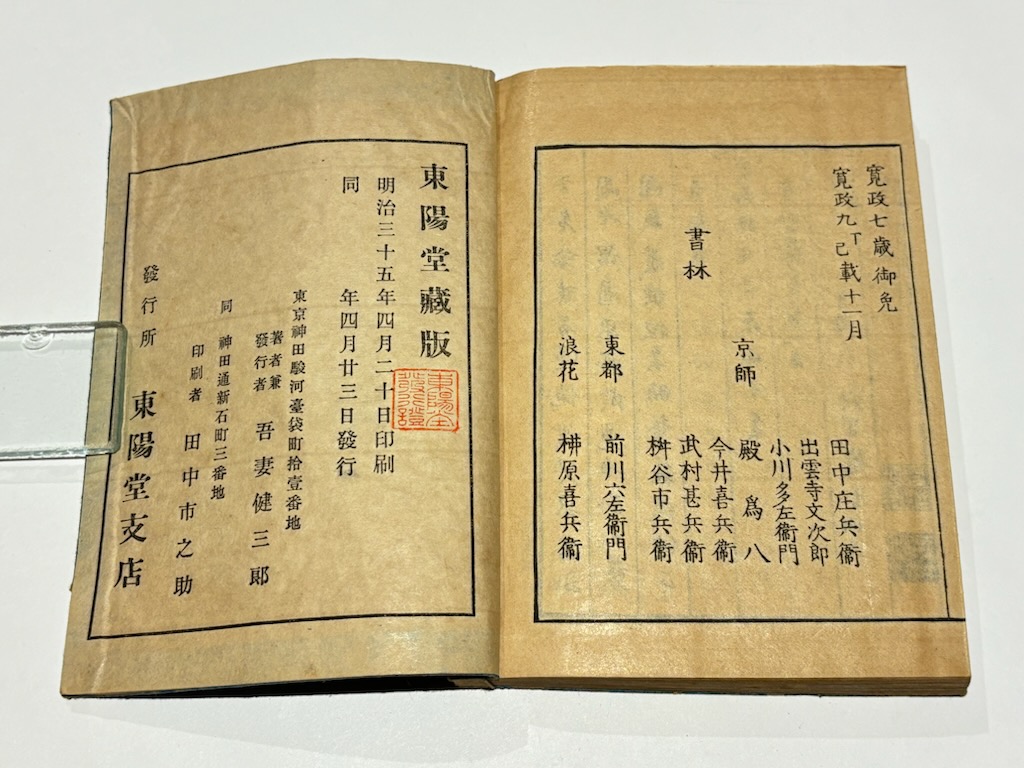 寛政七歳御免
寛政九丁巳載十一月
書林
京師
田中庄兵衞
出雲寺文次郎
小川多左衞門
殿為八
今井喜兵衞
武村甚兵衞
桝谷市兵衞
東都
前川六左衞門
浪花
柳原喜兵衞
東陽堂藏版
明治三十五年四月二十日印刷
同 年四月廿三日發行
東京神田駿河臺袋町拾壹番地
著者兼發行者 吾妻健三郎
同 神田通新石町三番地
印刷者 田中市之助
發行所 東陽堂支店
東陽堂